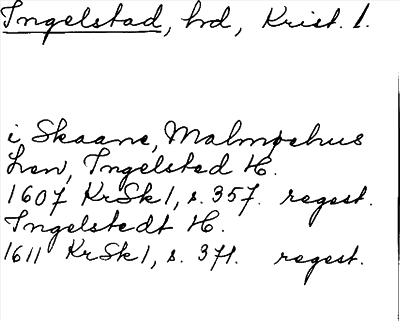 Ingelstad, hrd, Krist. l.
i Skaane, Malmøhus
Len, Ingelsted H.
1607 KrSk1, s. 357. regest.
Ingelstedt H.
1611 KrSk1, s. 371. regest.